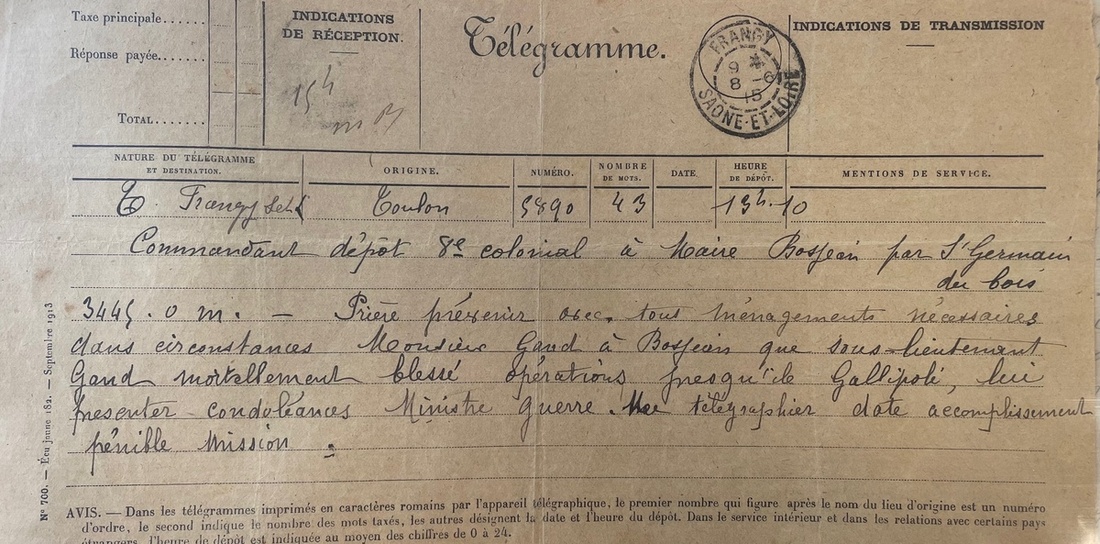 Taxe principale.....
Réponse payée......
TOTAL.......
INDICATIONS
DE RÉCEPTION.
15h
Télégramme.
FRANGY
9
8 -6
15
SAONE-ET-LOIRE
INDICATIONS DE TRANSMISSION
NATURE DU TÉLÉGRAMME
ET DESTINATION.
ORIGINE.
NUMÉRO.
NOMBRE
DE MOTS.
DATE.
HEURE
DE DÉPÔT.
MENTIONS DE SERVICE.
Frangy Toulon 5890 43 13h.10
Commandant dépôt 8e colonial à Maire Bosjean par St Germain
du bois
3445.0 m. — Prière prévenir avec tous ménagements nécessaires
dans circonstances Monsieur Gand à Bosjean que sous-lieutenant
Gand mortellement blessé opérations presqu'ile Gallipoli, lui
presenter condoléances Ministre guerre. Me télégraphier date accomplissement
pénible mission.
N° 700. — Écu jaune 182. — Septembre 1913
AVIS. — Dans les télégrammes imprimés en caractères romains par l'appareil télégraphique, le premier nombre qui figure après le nom du lieu d'origine est un numéro
d'ordre, le second indique le nombre des mots taxés, les autres désignent la date et l'heure du dépôt. Dans le service intérieur et dans les relations avec certains pays
étrangers, l'heure de dépôt est indiquée au moyen des chiffres de 0 à 24.